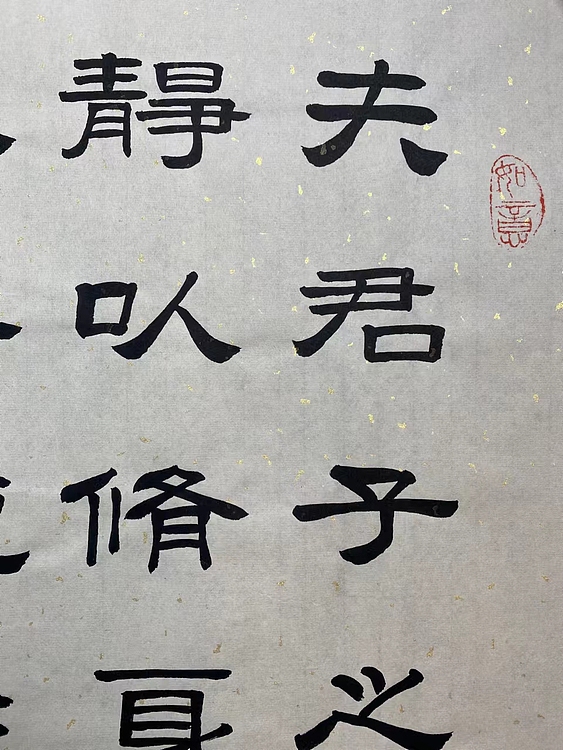 如意
夫君子之
靜以脩身